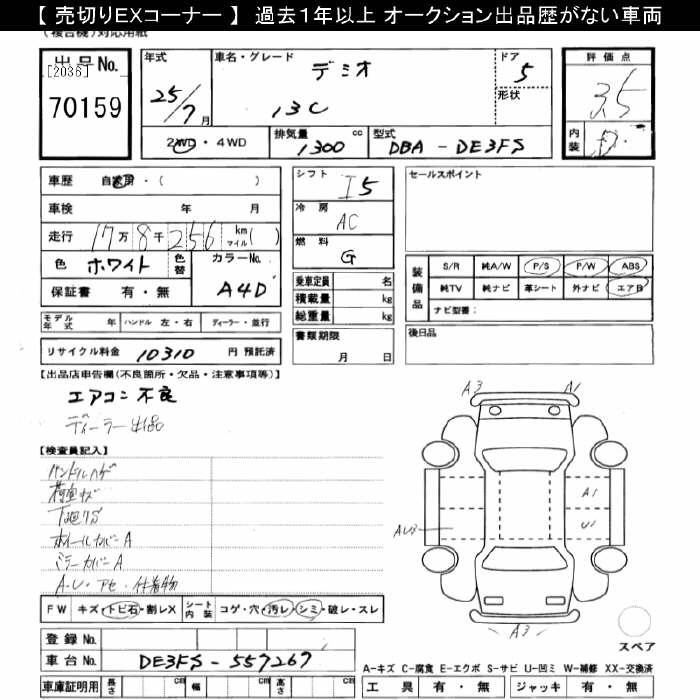 【 売切りEXコーナー 】 過去１年以上 オークション出品歴がない車両
(複合機)対応用紙
出品No.
[2036]
70159
年式
25/7月
車名・グレード
デミオ
13C
ドア
5
形状
評価点
3.5
内装
2WD・4WD
排気量
1300
cc
型式
DBA - DE3FS
車歴 自家用・( )
車検 年 月
走行 17万8千256 km マイル( )
色 ホワイト
色替
カラーNo.
A4D
保証書 有・無
モデル年式 年
ハンドル 左・右
ディーラー・並行
リサイクル料金 10310 円 預託済
シフト
I5
冷房
AC
燃料
G
乗車定員 名
積載量 kg
総重量 kg
書類期限
月 日
セールスポイント
装備品
S/R 純A/W P/S P/W ABS
純TV 純ナビ 革シート 外ナビ エアB
ナビ型番:
後日品
【出品店申告欄(不良箇所・欠品・注意事項等)】
エアコン不良
ディーラー出品
【検査員記入】
ハンドルハゲ
荷室キズ
下廻りS
ホイールカバーA
ミラーカバーA
A・U・アセ・付着物
A3
A1
A1
U1
AU3
A3
スペア
FW キズ・トビ石・割レX
シート内装 コゲ・穴・汚レ・シミ・破レ・スレ
登録No.
車台No. DE3FS-557267
車庫証明用 長さ cm 幅 cm 高さ cm
A-キズ C-腐食 E-エクボ S-サビ U-凹ミ W-補修 XX-交換済
工具 有・無 ジャッキ 有・無